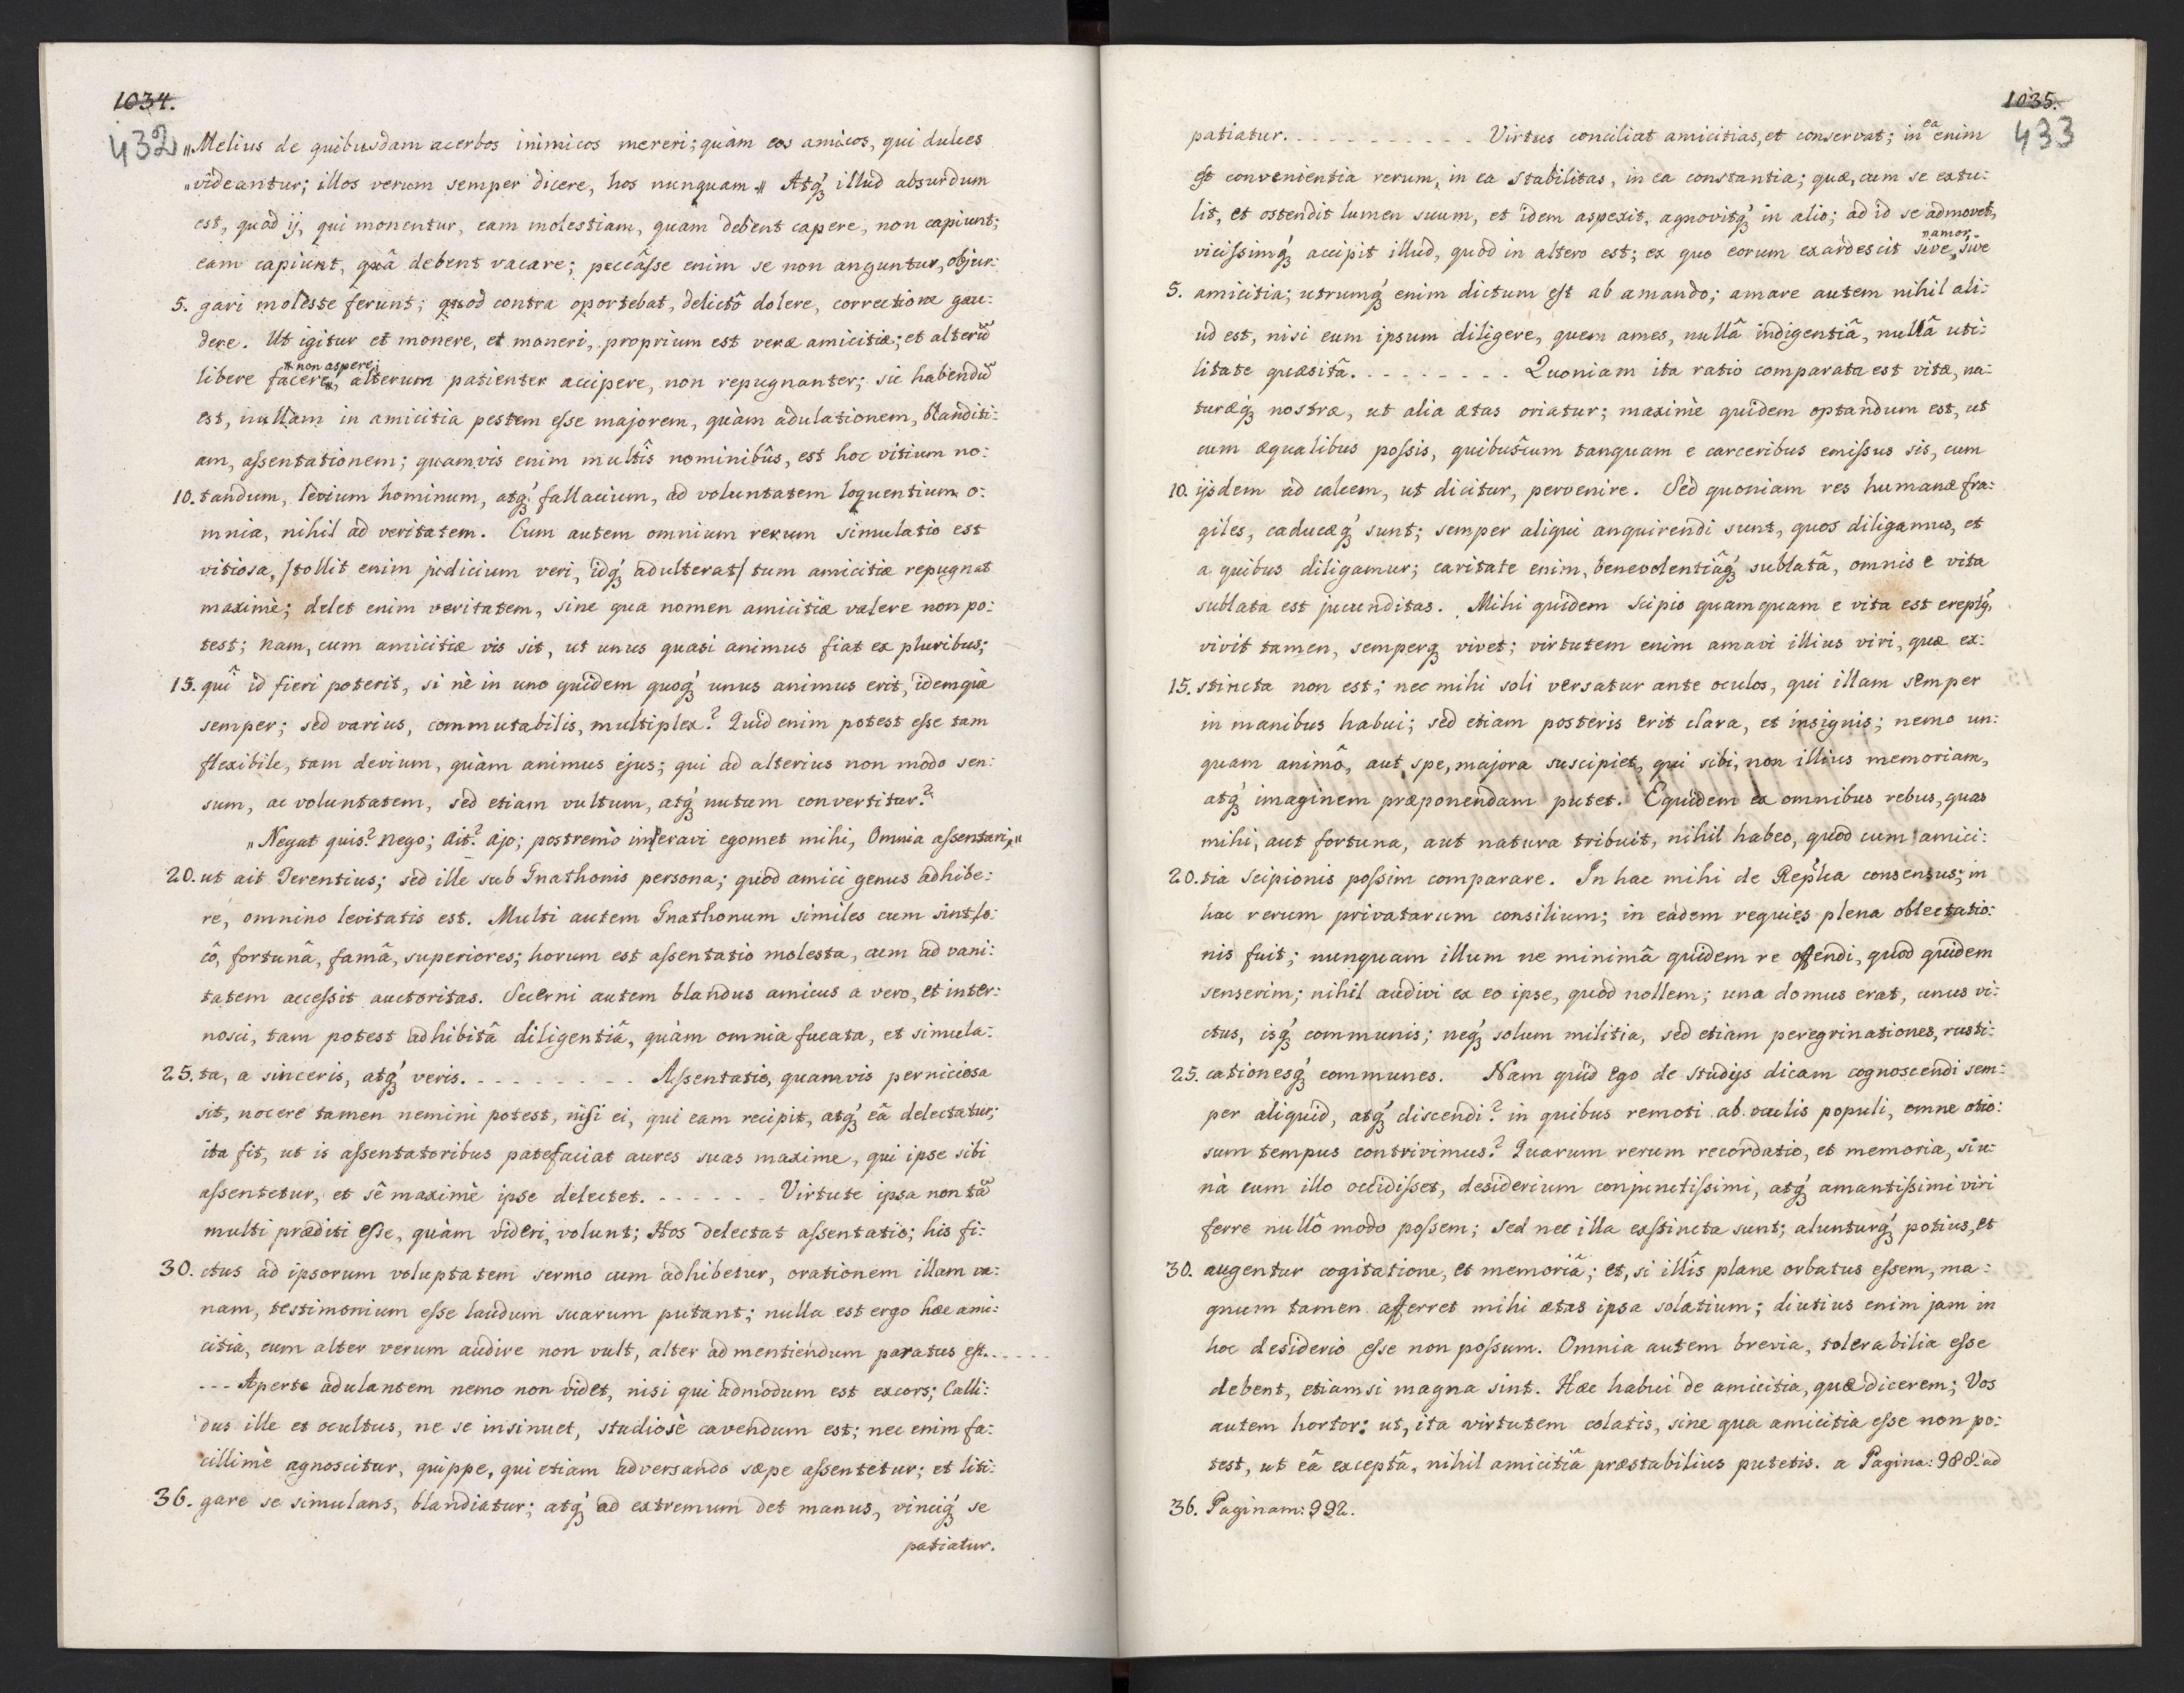 1034.
432
„Melius de quibusdam acerbos inimicos mereri; quàm eos amicos, qui dulces
„videantur; illos verum semper dicere, hos nunquam." Atq́ illud absurdum
est, quòd ij, qui monentur, eam molestiam, quam debent capere, non capiunt;
eam capiunt, quâ debent vacare; peccâsse enim se non anguntur, objur:
5. gari moleste ferunt; quod contra oportebat, delictô dolere, correctione gau:
dere. Ut igitur et monere, et moneri, proprium est veræ amicitiæ; et alterũ
libere facere, „non aspere; alterum patienter accipere, non repugnanter; sic habendũ
est, nullam in amicitia pestem esse majorem, quàm adulationem, blanditi:
am, assentationem; quamvis enim multîs nominibûs, est hoc vitium no:
10. tandum, levium hominum, atq́ fallacium, ad voluntatem loquentium o:
mnia, nihil ad veritatem. Cum autem omnium rerum simulatio est
vitiosa, /tollit enim judicium veri, idq́ adulterat/ tum amicitiæ repugnat
maximè; delet enim veritatem, sine qua nomen amicitiæ valere non po:
test; nam, cum amicitiæ vis sit, ut unus quasi animus fiat ex pluribus;
15. quî id fieri poterit, si nè in uno quidem quoq́ unus animus erit, idemquè
semper; sed varius, commutabilis, multiplex? Quid enim potest esse tam
flexibile, tam devium, quàm animus ejus; qui ad alterius non modo sen:
sum, ac voluntatem, sed etiam vultum, atq́ nutum convertitur?
„Negat quis? nego; ait? ajo; postremò imperavi egomet mihi, Omnia assentari,"
20. ut ait Terentius; sed ille sub Gnathonis persona; quod amici genus adhibe:
re, omnino levitatis est. Multi autem Gnathonum similes cum sint lo:
cô, fortunâ, famâ, superiores; horum est assentatio molesta, cum ad vani:
tatem accessit auctoritas. Secerni autem blandus amicus a vero, et inter:
nosci, tam potest adhibitâ diligentiâ, quàm omnia fucata, et simula:
25. ta, a sinceris, atq́ veris. - - - - - - - - - Assentatio, quamvis perniciosa
sit, nocere tamen nemini potest, nisi ei, qui eam recipit, atq́ eâ delectatur;
ita fit, ut is assentatoribus patefaciat aures suas maxime, qui ipse sibi
assentetur, et sê maximè ipse delectet. - - - - - - Virtute ipsa non tã
multi præditi esse, quàm videri, volunt; Hos delectat assentatio; his fi:
30. ctus ad ipsorum voluptatem sermo cum adhibetur, orationem illam va:
nam, testimonium esse laudum suarum putant; nulla est ergo hæc ami:
citia, cum alter verum audire non vult, alter ad mentiendum paratus est. - - - -
--- Aperte adulantem nemo non videt, nisi qui admodum est excors; Calli:
dus ille et ocultus, ne se insinuet, studiosè cavendum est; nec enim fa:
cillimè agnoscitur, quippe, qui etiam adversando sæpe assentetur; et liti:
36. gare se simulans, blandiatur; atq́ ad extremum det manus, vinciq́ se
patiatur.
1035.
433
patiatur. - - - - - - - - - - - Virtus conciliat amicitias, et conservat; in ea enim
est convenientia rerum, in ea stabilitas, in ea constantia; quæ, cum se extu:
lit, et ostendit lumen suum, et idem aspexit, agnovitq́ in alio; ad id se admovet,
vicissimq́ accipit illud, quòd in altero est; ex quo eorum exardescit sive „amor, sive
5. amicitia; utrumq́ enim dictum est ab amando; amare autem nihil ali:
ud est, nisi eum ipsum diligere, quem ames, nullâ indigentiâ, nullâ uti:
litate quæsitâ. - - - - - - - - - Quoniam ita ratio comparata est vitæ, na:
turæq́ nostræ, ut alia ætas oriatur; maximè quidem optandum est, ut
cum æqualibus possis, quibuscum tanquam e carceribus emissus sis, cum
10. ijsdem ad calcem, ut dicitur, pervenire. Sed quoniam res humanæ fra:
giles, caducæq́ sunt; semper aliqui anquirendi sunt, quos diligamus, et
a quibus diligamur; caritate enim, benevolentiâq́ sublatâ, omnis e vita
sublata est jucunditas. Mihi quidem Scipio quamquam e vita est ereptq,
vivit tamen, semperq́ vivet; virtutem enim amavi illius viri, quæ ex:
15. stincta non est; nec mihi soli versatur ante oculos, qui illam semper
in manibus habui; sed etiam posteris erit clara, et insignis; nemo un:
quam animô, aut spe, majora suscipiet, qui sibi, non illius memoriam,
atq́ imaginem præponendam putet. Equidem ex omnibus rebus, quas
mihi, aut fortuna, aut natura tribuit, nihil habeo, quod cum amici:
20. tia Scipionis possim comparare. In hac mihi de Repl̃ica consensus; in
hac rerum privatarum consilium; in eâdem requies plena oblectatio:
nis fuit; nunquam illum ne minimâ quidem re offendi, quod quidem
senserim; nihil audivi ex eo ipse, quòd nollem; una domus erat, unus vi:
ctus, isq́ communis; neq́ solum militia, sed etiam peregrinationes, rusti:
25. cationesq́ communes. Nam quid ego de studijs dicam cognoscendi sem:
per aliquid, atq́ discendi? in quibus remoti ab oculis populi, omne otio:
sum tempus contrivimus? Quarum rerum recordatio, et memoria, si u:
nà cum illo occidisset, desiderium conjunctissimi, atq́ amantissimi viri
ferre nullô modo possem; Sed nec illa exstincta sunt; alunturq́ potius, et
30. augentur cogitatione, et memoriâ; et, si illîs plane orbatus essem, ma:
gnum tamen afferret mihi ætas ipsa solatium; diutius enim jam in
hoc desiderio esse non possum. Omnia autem brevia, tolerabilia esse
debent, etiamsi magna sint. Hæc habui de amicitia, quæ dicerem; Vos
autem hortor: ut, ita virtutem colatis, sine qua amicitia esse non po:
test, ut eâ exceptâ, nihil amicitiâ præstabilius putetis. a Pagina: 988. ad
36. Paginam: 992.